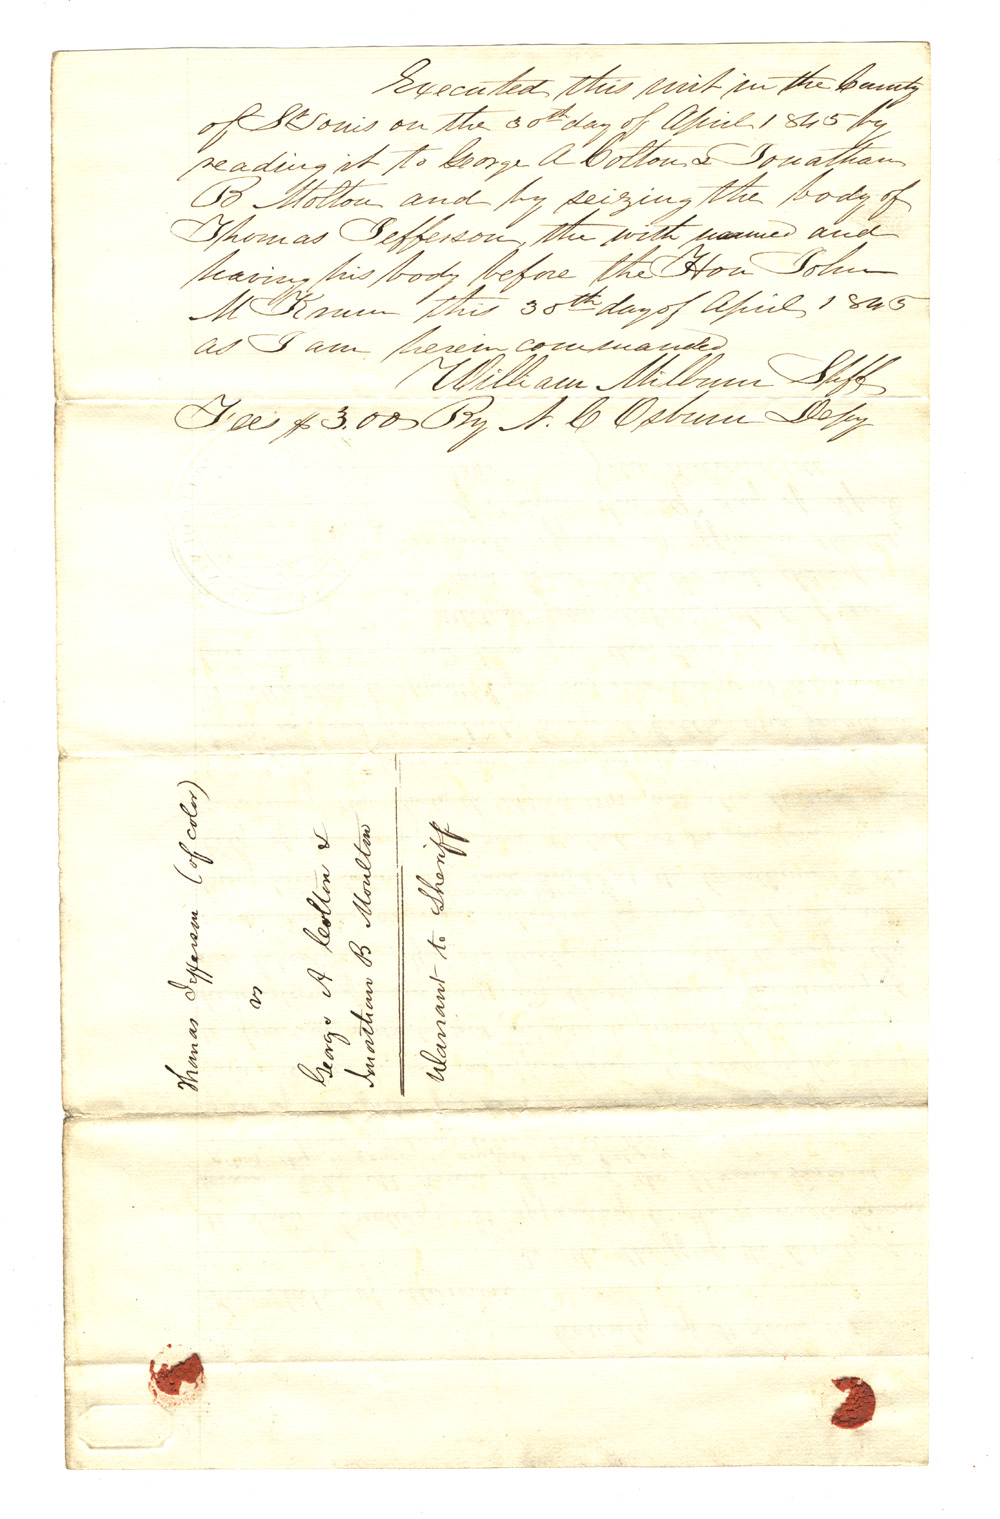 Executed this writ in the County
of St Louis on the 30th day of April 1845 by
reading it to George A Colton & Jonathan
B Molton and by seizing the body of
Thomas Jefferson, the with named and
having his body before the Hon John
M Krum this 30th day of April 1845
as I am herein commanded
William Milburn Shff
Fees $3.00 By N. C Osburn Depy
Thomas Jefferson (of color)
vs
George A Colton &
Jonathan B Moulton
Warrant to Sheriff